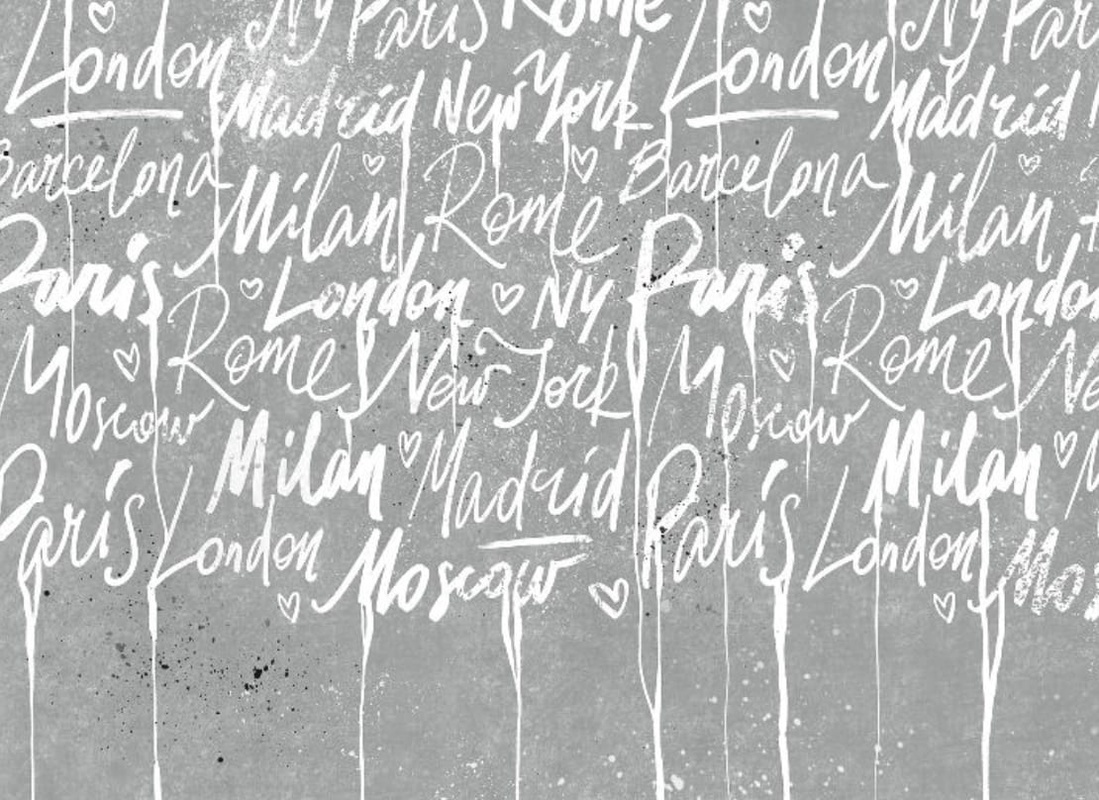 Ny Paris Rome Ny Par
London London
Madrid New York Madrid
Barcelona Milan Rome Barcelona Milan
Paris London Ny Paris London
Moscow Rome New York Moscow Rome Ne
Paris Milan Madrid Paris Milan M
London Moscow London Mos